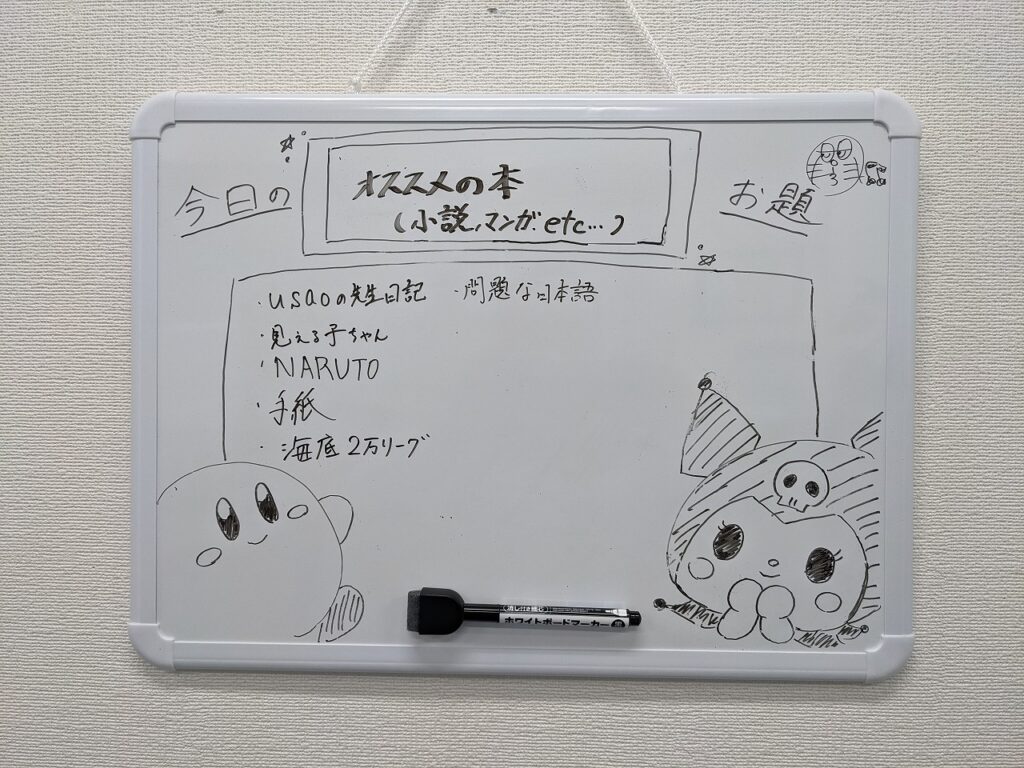 今日の
オススメの本
(小説、マンガ etc…)
お題
・usaoの先生日記 ・問題な日本語
・見える子ちゃん
・NARUTO
・手紙
・海底2万リーグ
ホワイトボードマーカー